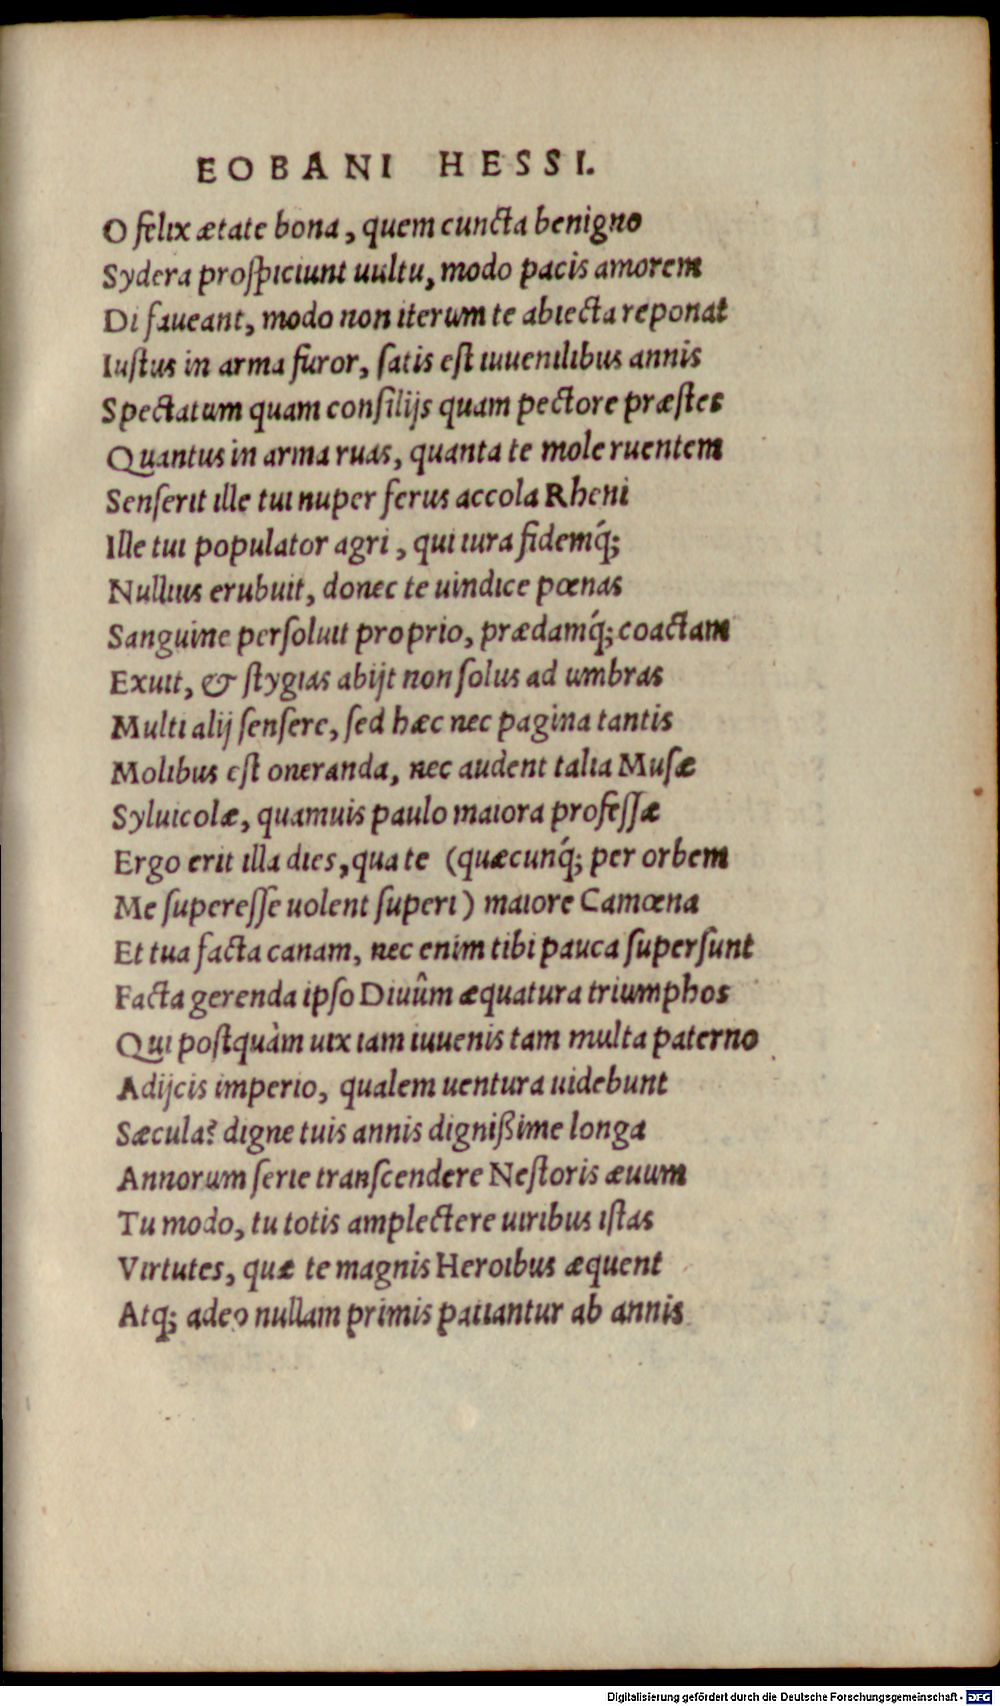 EOBANI HESSI.
O felix ætate bona, quem cuncta benigno
Sydera proſpiciunt uultu, modo pacis amorem
Di faueant, modo non iterum te abiecta reponat
Iuſtus in arma furor, ſatis eſt iuuenilibus annis
Spectatum quam conſilijs quam pectore præſtes
Quantus in arma ruas, quanta te mole ruentem
Senſerit ille tui nuper ferus accola Rheni
Ille tui populator agri, qui iura fidemq́;
Nullius erubuit, donec te uindice pœnas
Sanguine perſoluit proprio, prædamq́; coactam
Exuit, & ſtygias abijt non ſolus ad umbras
Multi alij ſenſere, ſed hæc nec pagina tantis
Molibus eſt oneranda, nec audent talia Muſæ
Syluicolæ, quamuis paulo maiora profeſſæ
Ergo erit illa dies, qua te (quæcunq́; per orbem
Me ſupereſſe uolent ſuperi) maiore Camœna
Et tua facta canam, nec enim tibi pauca ſuperſunt
Facta gerenda ipſo Diuûm æquatura triumphos
Qui poſtquàm uix iam iuuenis tam multa paterno
Adijcis imperio, qualem uentura uidebunt
Sæcula? digne tuis annis dignißime longa
Annorum ſerie tranſcendere Neſtoris æuum
Tu modo, tu totis amplectere uiribus iſtas
Virtutes, quæ te magnis Heroibus æquent
Atq; adeo nullam primis patiantur ab annis
Digitalisierung gefördert durch die Deutsche Forschungsgemeinschaft - DFG